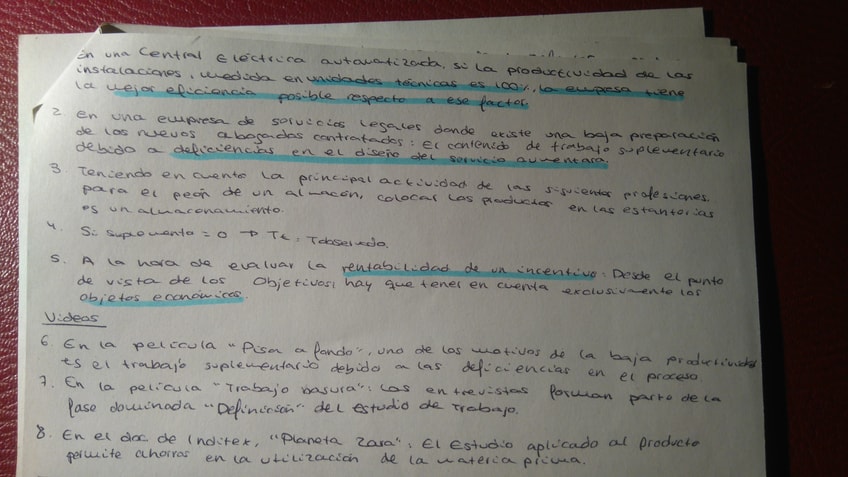 En una Central Eléctrica automatizada, si la productividad de las
instalaciones, medida en unidades técnicas es 100%, la empresa tiene
la mejor eficiencia posible respecto a ese factor.
2. En una empresa de servicios legales donde existe una baja preparación
de los nuevos abogados contratados: El contenido de trabajo suplementario
debido a deficiencias en el diseño del servicio aumentará.
3. Teniendo en cuenta la principal actividad de las siguientes profesiones.
para el peón de un almacén, colocar los productos en las estanterías
es un almacenamiento.
4. Si suplemento = 0 → Tobservado.
5. A la hora de evaluar la rentabilidad de un incentivo: Desde el punto
de vista de los Objetivos, hay que tener en cuenta exclusivamente los
objetos económicos.
Videos
6. En la película "Pisa a fondo", uno de los motivos de la baja productividad
es el trabajo suplementario debido a las deficiencias en el proceso.
7. En la película "Trabajo basura": Las entrevistas forman parte de la
fase dominada "Definición" del Estudio de Trabajo.
8. En el doc de Inditex, "Planeta Zara": El Estudio aplicado al producto
permite ahorros en la utilización de la materia prima.